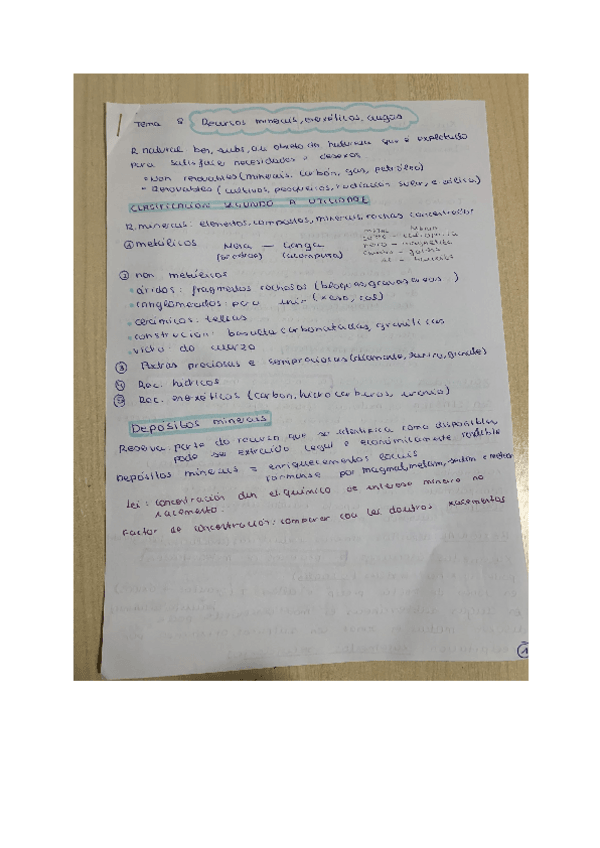 Tema 8 Recursos minerais, enerxéticos, augas
R. natural: ben, subs, ou obxeto da natureza que é explotado
para satisfacer necesidades e desexos
- Non renovables (minerais, carbón, gas, petróleo)
- Renovables (cultivos, pesqueiros, radiación solar, e eólica)
CLASIFICACIÓN SEGUNDO A UTILIDADE
R. minerais: elementos, compostos, minerais, rochas concentración
① metálicos Mena — Ganga
(proveito) (acompaña)
② non metálicos
• áridos: fragmentos rochosos (bloques, gravas, areas)
• conglomerados: para unir (xeso, cal)
• cerámicos: tellas
• construcion: basalto, carbonatadas, graníticas
• vidro: do cuarzo
③ Pedras preciosas e semipreciosas (diamante, zafiro, granate)
④ Rec. hídricos
⑤ Rec. enerxéticos (carbon, hidrocarburos, uranio)
Depósitos minerais
Reserva: parte do recurso que se identifica como dispoñible,
pode ser extraido legal e economicamente rendible
Depósitos minerais = enriquecementos locais
formanse por magmat, metam, sedim e meteor
Lei: concentración dun el. químico de interese mineiro no
xacemento.
Factor de concentración: comparar coa lei doutros xacementos
1